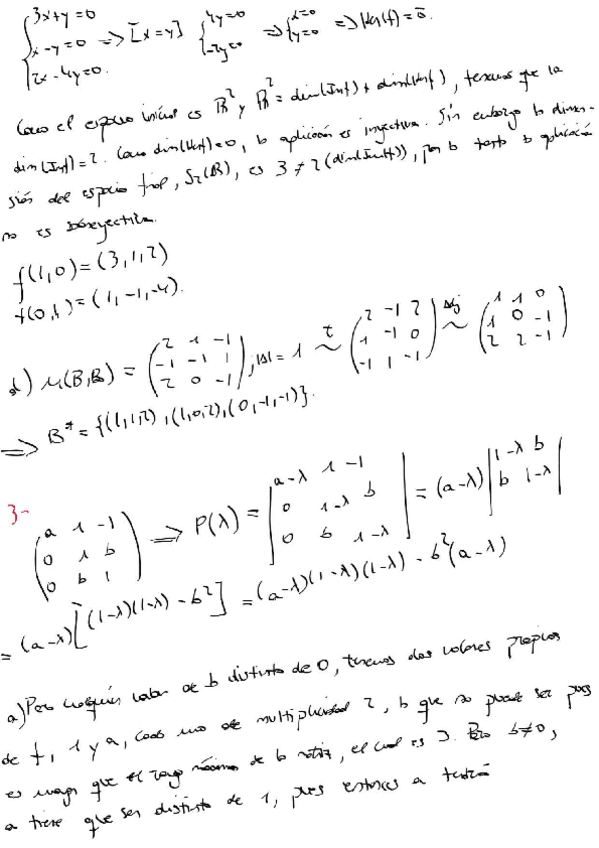 {3x+y=0
x-y=0 => [x=y] {4y=0 => {x=0 => Ker(f)=0̄.
2x-4y=0. -2y=0 y=0
Como el espacio inicial es R² y R²=dim(Imf)+dim(Kerf), tenemos que la
dim(Imf)=2. Como dim(Kerf)=0, la aplicación es inyectiva. Sin embargo la dimen-
sión del espacio final, S₂(R), es 3≠2(dim(Imf)), por lo tanto la aplicación
no es sobreyectiva.
f(1,0)=(3,1,2)
f(0,1)=(1,-1,-4).
d) M(B,B₀) = (2 1 -1 / -1 -1 1 / 2 0 -1), |A|=1 ~ᵗ (2 -1 2 / 1 -1 0 / -1 1 -1) ~ᴬᵈʲ (1 1 0 / 1 0 -1 / 2 2 -1)
=> B* = {(1,1,2),(1,0,2),(0,-1,-1)}.
3- (a 1 -1 / 0 1 b / 0 b 1) => P(λ) = |a-λ 1 -1 / 0 1-λ b / 0 b 1-λ| = (a-λ)|1-λ b / b 1-λ|
= (a-λ)[(1-λ)(1-λ) - b²] = (a-λ)(1-λ)(1-λ) - b²(a-λ)
a) Para cualquier valor de b distinto de 0, tenemos dos valores propios
de f, 1 y a, cada uno de multiplicidad 2, lo que no puede ser pues
es mayor que el rango máximo de la matriz, el cual es 3. Pero b≠0,
a tiene que ser distinto de 1, pues entonces a tendría